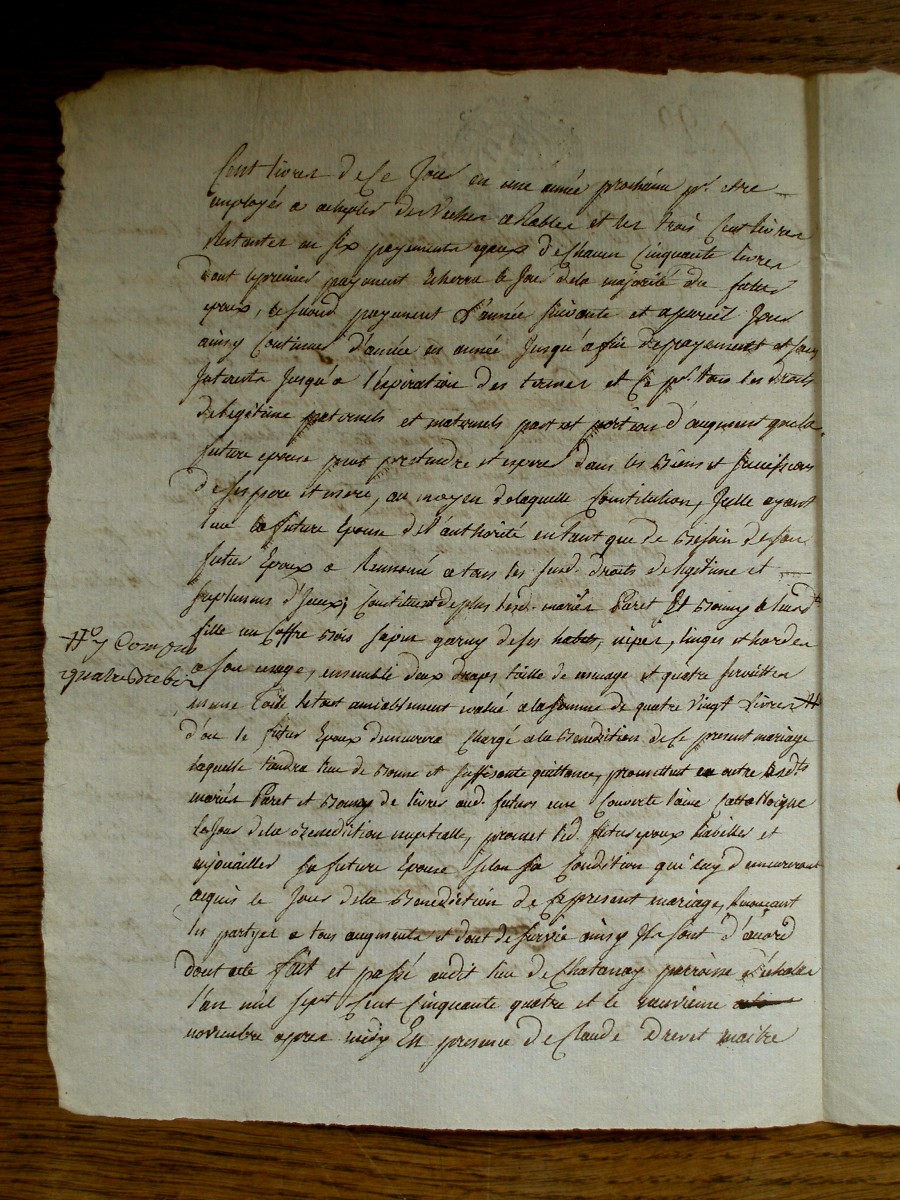 Cent livres de Ce Jour en une année prochaine pr. etre
employés a achepter des Vaches et les trois Cent livres
Restantes en six payements egaux de Chacun Cinquante livres
dont le premier payement Echerra le Jour dela majorité du futur
epoux, le second payement L'année suivante et a pareil Jour
ainsy Continuer d'année en année Jusqu'a fin de payement et sans
Interets Jusqu'a l'expiration des termes et Ce pr. tous les droits
de legitime paternels et maternels part et portion d'augment que la
future epouse peut pretendre et esperer dans les Biens et successions
de ses pere et mere, au moyen de laquelle Constitution, Icelle ayant
lad. future Epouse de l'authorité en tant que de Besoin de son
futur Epoux a Renoncé a tous les susd. droits de legitime et
supplement d'Iceux; Constituent de plus lesd. mariés Paret et Bonny a leurd.te
fille un Coffre Bois sapin garny de ses habits, nipes, linges et hardes
a son usage, ensemble deux draps toille de menage et quatre serviettes
meme toile le tout amiablement evalué a la somme de quatre vingt Livres #
d'ou le futur Epoux demeurera Chargé a la Benediction de Ce present mariage
laquelle tiendra lieu de Bonne et suffisante quittance, promettent en outre lesd.ts
mariés Paret et Bonny de livrer aud. futurs une Couverte laine Cattalogne
le Jour de la Benediction nuptialle, promet led. futur epoux habiller et
enjouailler sa future Epouse selon sa Condition qui luy demeurerront
acquis le Jour dela Benediction de Ce present mariage, Renonçant
les partyes a tous augments et dont de survie ainsy Ils sont d'acord
dont acte fait et passé audit lieu de Chatanay parroisse
l'an mil sept Cent Cinquante quatre et le neuvieme
novembre apres midy En presence de Claude Drevet maitre
# y Compris
quatre brebis